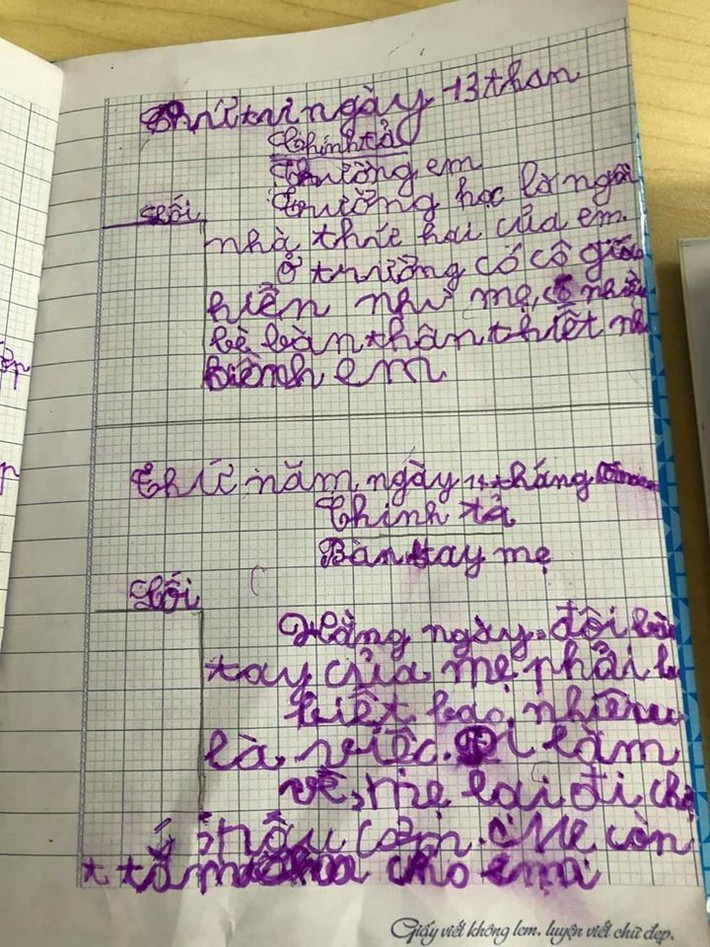 Thứ tư ngày 13 than
Chính tả
Trường em
Trường học là ngôi
Lỗi
nhà thứ hai của em.
Ở trường có cô giáo
hiền như mẹ, có nhiều
bè bạn thân thiết như
em
Thứ năm ngày 14 tháng
Chính tả
Bàn tay mẹ
Lỗi
Hằng ngày, đôi bàn
tay của mẹ phải
biết bao nhiêu
là việc. Đi làm
về, mẹ lại đi chợ
nấu cơm. Mẹ còn
tắm cho em
Giấy viết không lem, luyện viết chữ đẹp.